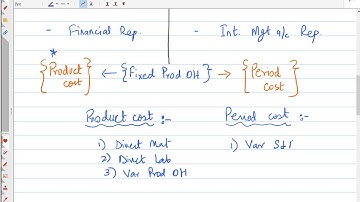 - Financial Rep.
- Int. Mgt a/c Rep.
*
{Product cost} ← {Fixed Prod OH} → {Period cost}
Product cost :-
Period cost :-
1) Direct Mat
1) Var S&D
2) Direct Lab
3) Var Prod OH